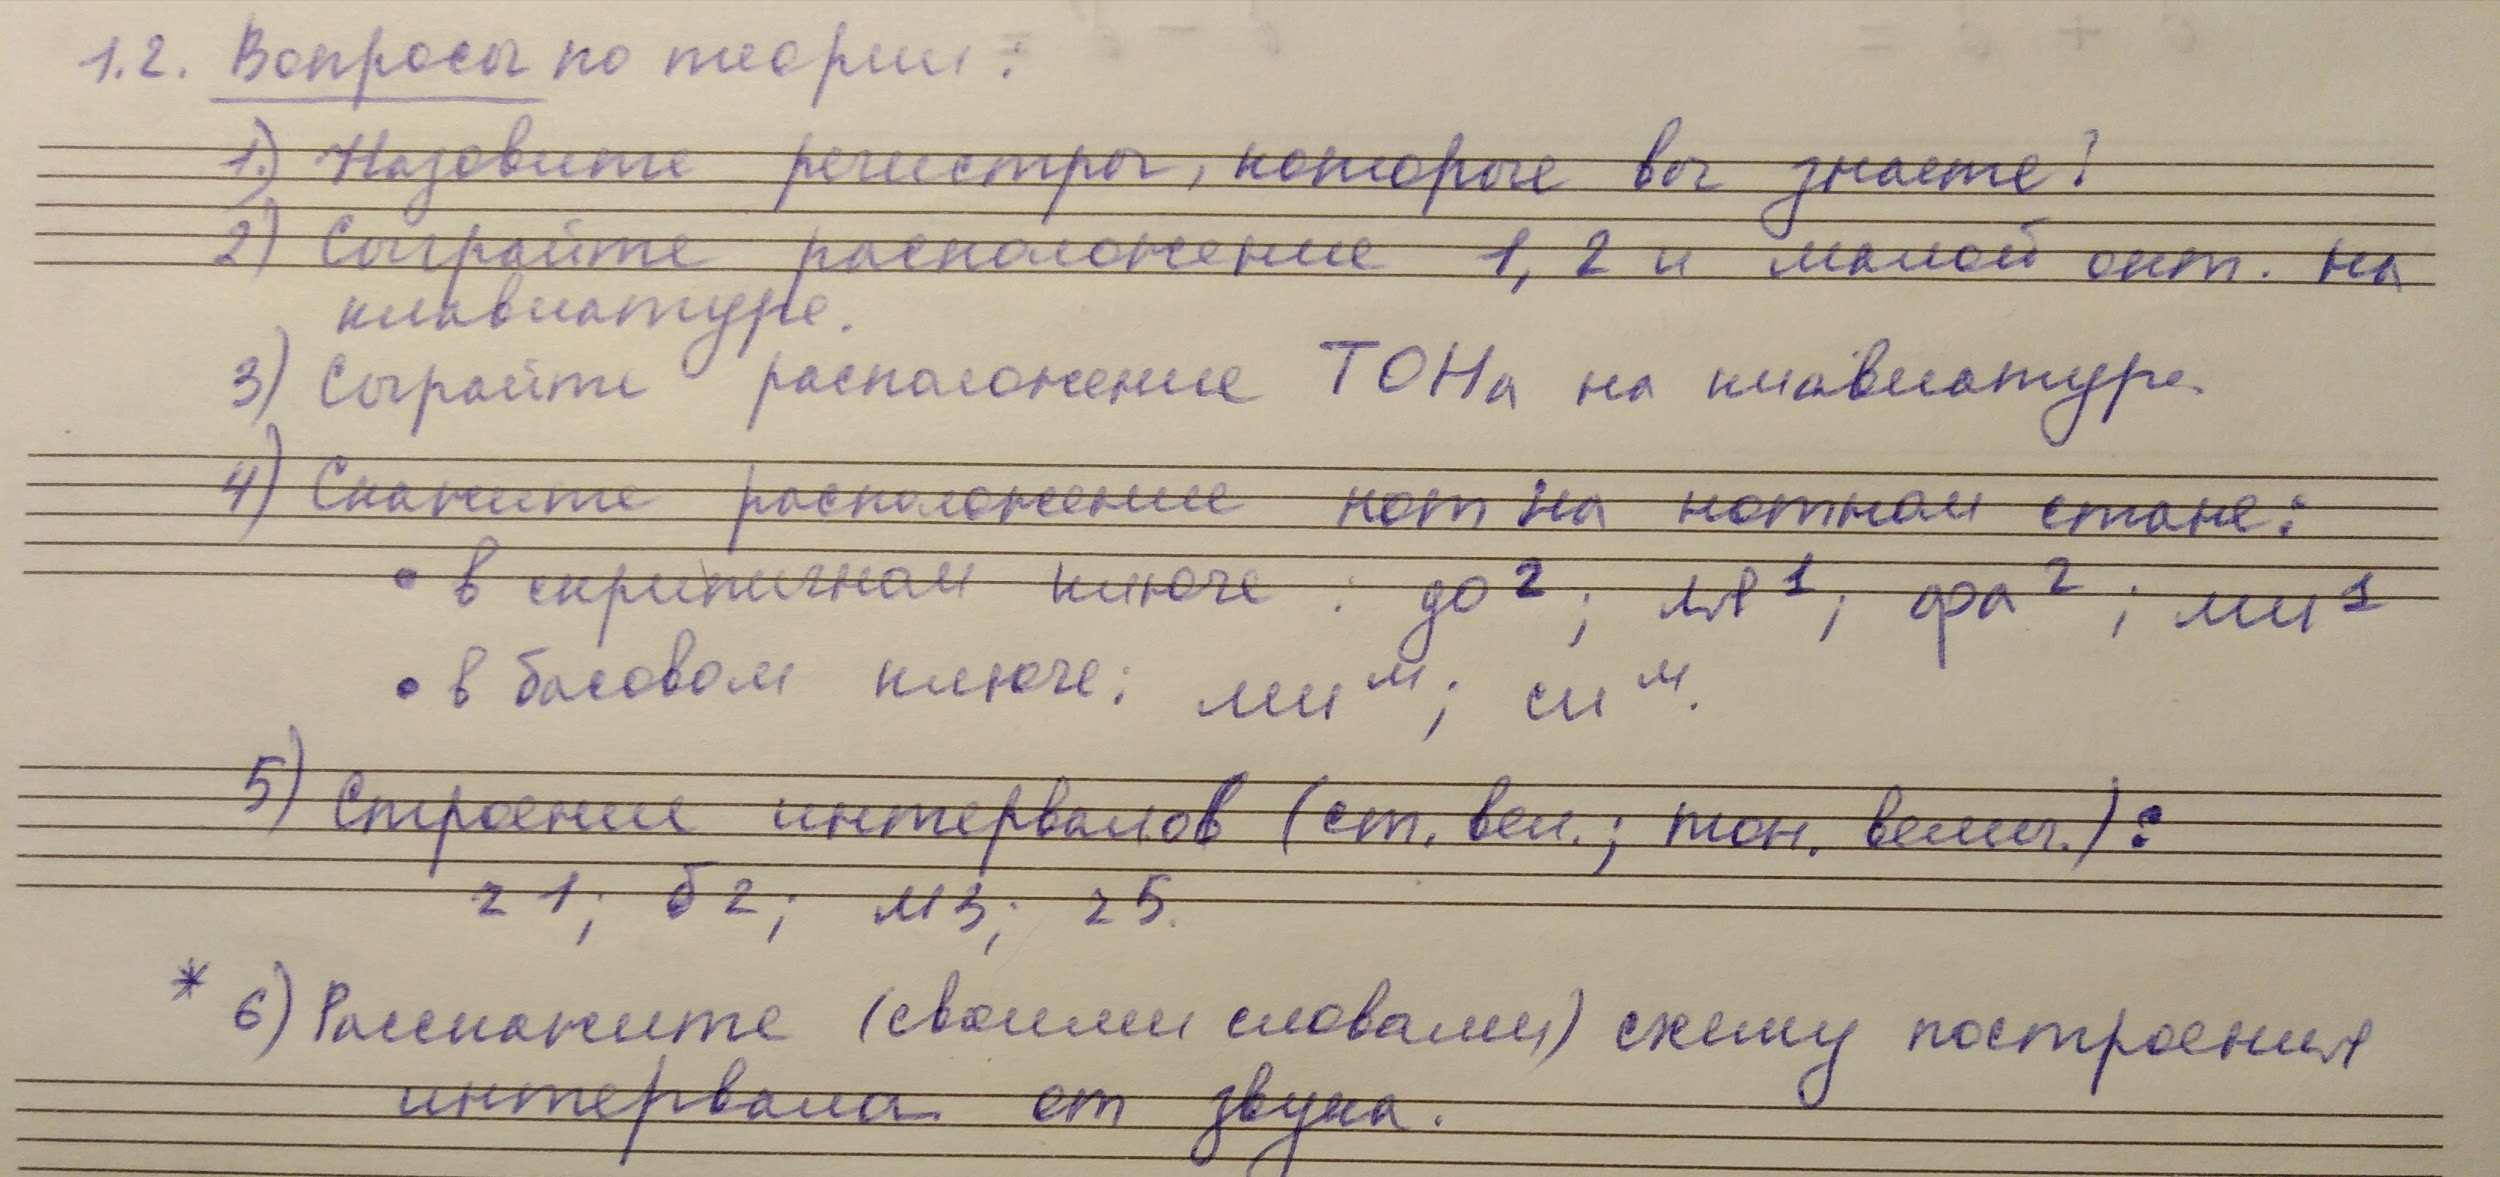 1.2. Вопросы по теории:
1.) Назовите регистры, которые вы знаете?
2) Сыграйте расположение 1, 2 и малой окт. на
клавиатуре.
3) Сыграйте расположение ТОНа на клавиатуре.
4) Скажите расположение нот на нотном стане:
• в скрипичном ключе: до²; ля¹; фа²; ми¹
• в басовом ключе: миᴹ; сиᴹ.
5) Строение интервалов (ст. вел.; тон. велич.):
ч1; б2; м3; ч5.
* 6) Расскажите (своими словами) схему построения
интервала от звука.